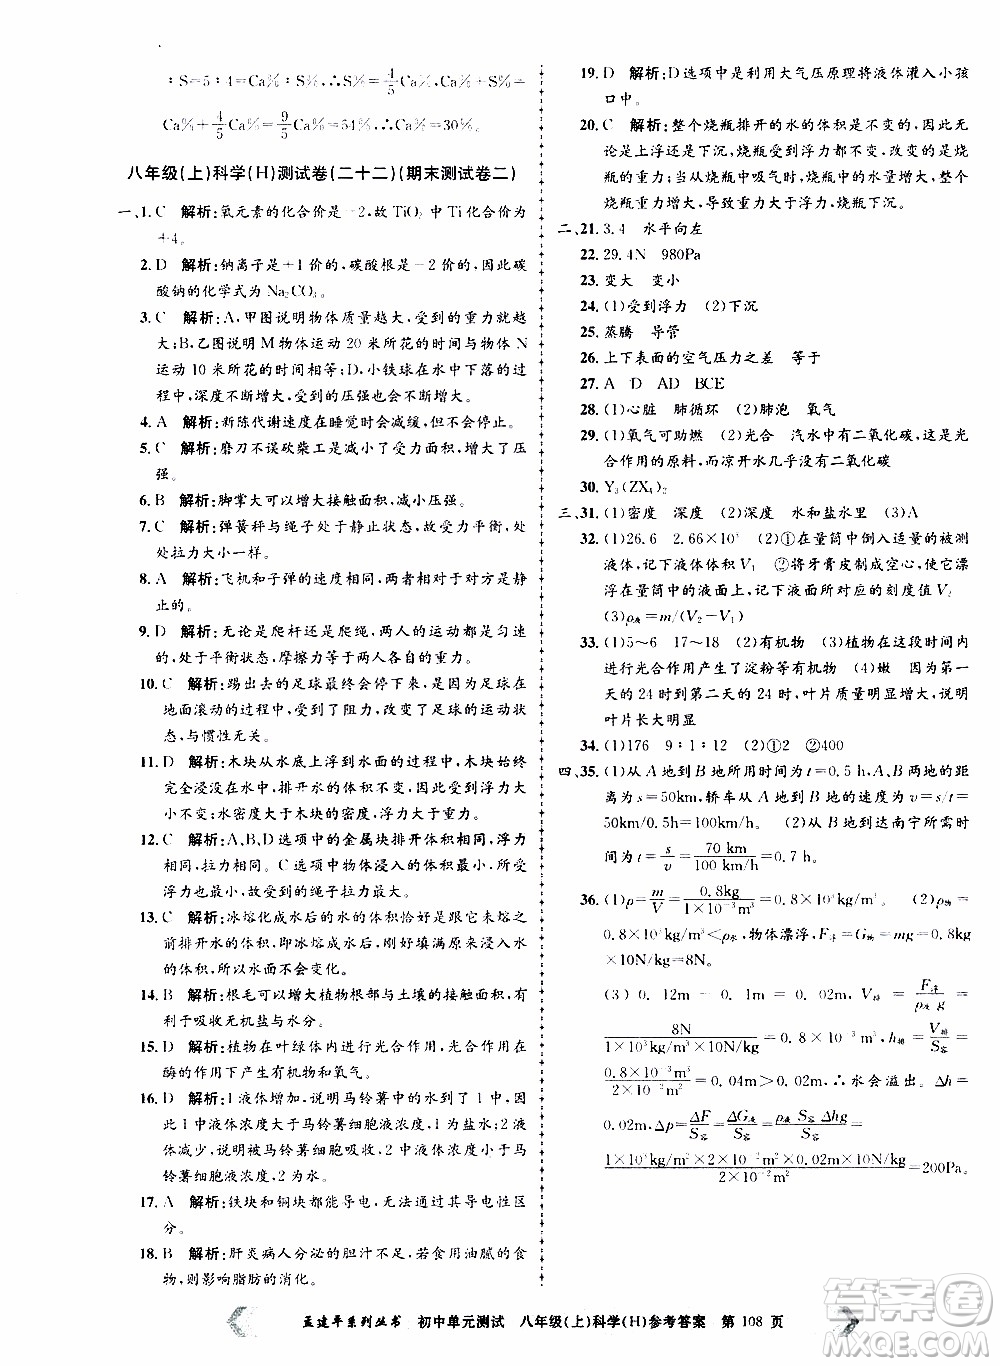 ∶S=5∶4=Ca%∶S%,∴S%=4/5Ca%,Ca%+S%=
Ca%+4/5Ca%=9/5Ca%=54%,∴Ca%=30%。
八年级(上)科学(H)测试卷(二十二)(期末测试卷二)
一、1. C 解析:氧元素的化合价是-2,故TiO₂中Ti化合价为
+4。
2. D 解析:钠离子是+1价的,碳酸根是-2价的,所以碳
酸钠的化学式为Na₂CO₃。
3. C 解析:A,甲图说明物体质量越大,受到的重力就越
大;B,乙图说明M物体运动20米所花的时间与物体N
运动10米所花的时间相等;D,小铁球在水中下落的过
程中,深度不断增大,受到的压强也不断增大。
4. A 解析:新陈代谢速度在睡觉时会减缓,但不会停止。
5. B 解析:磨刀不误砍柴工是通过减少受力面积增大压
强。
6. B 解析:脚掌大可以增大接触面积,减小压强。
7. C 解析:弹簧秤与绳子处于静止状态,故受力平衡,处
处拉力大小一样。
8. A 解析:飞机和子弹的速度相同,两者相对于对方是静
止的。
9. D 解析:无论是爬杆还是爬绳,两人的运动都是匀速
的,处于平衡状态,摩擦力等于重力。
10. C 解析:踢出去的足球最终会停下来,是因为足球在
地面滚动的过程中,受到了阻力,改变了足球的运动状态,
与惯性无关。
11. D 解析:木块从水底上浮到水面的过程中,木块完全
在水中时,排开水的体积不变,所以受到的浮力不变。
由于水的密度大于木块的密度,浮力大于重力。
12. C 解析:A、B、D选项中的金属块排开体积相同,浮力
相同,拉力相同。C选项中物体浸入的体积最少,受到的
浮力也最小,故受到的绳子拉力最大。
13. C 解析:冰熔化成水后的水的体积恰好等于熔化之
前排开水的体积,即冰熔成水后刚好填补了原来浸入水
的体积,所以水面不会变化。
14. B 解析:根毛可以增大植物根部与土壤的接触面积,有
利于吸收无机盐与水分。
15. D 解析:植物在叶绿体内进行光合作用,在光和
酶的作用下产生有机物和氧气。
16. D 解析:1液体增加,是马铃薯中的水到了液体中,因
此1中液体浓度大于马铃薯细胞液浓度,为盐水;2液体
减少,说明液体中的水到了马铃薯中,2液体浓度小于
马铃薯细胞液浓度,为清水。
17. A 解析:铁块和铜块都能导电,无法通过导电性区
分。
18. B 解析:肝炎病人分泌的胆汁不足,若食用油腻的食
物,则影响脂肪的消化。
19. D 解析:D选项中是利用大气压原理将液体灌入小孩
口中。
20. C 解析:整个烧瓶排开的水的体积是不变的,无论烧瓶
是上浮还是下沉,烧瓶受到的浮力都不变,改变的是烧
瓶的重力大小。烧瓶下沉是因为烧瓶中吸入了水,烧瓶
中的液体增大,导致重力大于浮力,使之下沉。
二、21. 3.4 水平向左
22. 29.4N 980Pa
23. 变大 变小
24. (1)受到浮力 (2)下沉
25. 蒸腾 导管
26. 上下表面的空气压力之差 等于
27. A D AD BCE
28. (1)心脏 肺循环 (2)肺泡 氧气
29. (1)氧气可助燃 (2)光合 汽水中有二氧化碳,是光
合作用的原料,而凉开水几乎没有二氧化碳
30. Y₃(ZX₄)₂
三、31. (1)密度 深度 (2)深度 水和盐水里 (3)A
32. (1)26.6 2.66×10³ (2)①在量筒中倒入适量的被测
液体,记下液体体积V₁ ②将牙膏皮制成空心,使它漂
浮在量筒中的液面上,记下液面所对应的刻度值V₂
(3)ρ液=m/(V₂-V₁)
33. (1)5~6 17~18 (2)有机物 (3)植物在这段时间内
进行光合作用产生了淀粉等有机物 (4)嫩 因为第一
天的24时到第二天的24时,叶片质量明显增大,说明
叶片长大明显
34. (1)176 9∶1∶12 (2)①2 ②400
四、35. (1)从A地到B地所用时间为t=0.5h,A、B两地的距
离s=50km,轿车从A地到B地的速度为v=s/t=
50km/0.5h=100km/h。 (2)从B地到达南宁所需时
间为t=s/v=70 km/100 km/h=0.7 h。
36. (1)ρ=m/V=0.8kg/1×10⁻³m³=0.8×10³kg/m³。 (2)ρ物=
0.8×10³kg/m³<ρ水,物体漂浮,F浮=G物=mg=0.8kg
×10N/kg=8N。
(3) 0.12m-0.1m=0.02m,V排=F浮/ρ水g=
8N/1×10³kg/m³×10N/kg=0.8×10⁻³m³,h排=V排/S容=
0.8×10⁻³m³/2×10⁻²m²=0.04m>0.02m,∴水会溢出。Δh=
0.02m,Δp=ΔF/S容=ΔG水/S容=ρ水S容Δhg/S容=
1×10³kg/m³×2×10⁻²m²×0.02m×10N/kg/2×10⁻²m²=200Pa。
孟建平系列丛书 初中单元测试 八年级(上)科学(H)参考答案 第 108 页
作业精灵